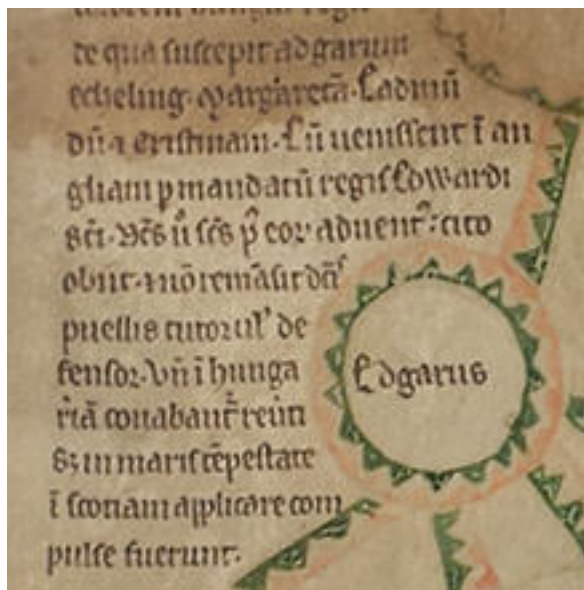 de qua suscepit adgarum
etheling. Margaretã. Eadmũ
dũ ⁊ cristinam. Cũ uenissent ĩ an
gliam p mandatũ regis Edwardi
sc̃i. ip̃e ũ sc̃s p̃ eoꝝ aduent᷒: cito
obiit. ⁊ nõ remãsit dc̃is
puellis tutor ul᷒ de
fensor. Vñ ĩ hunga
riã conabant᷒ reuti
sꝫ in maris tẽpestate
ĩ scotiam applicare com
pulse fuerunt.
Edgarus